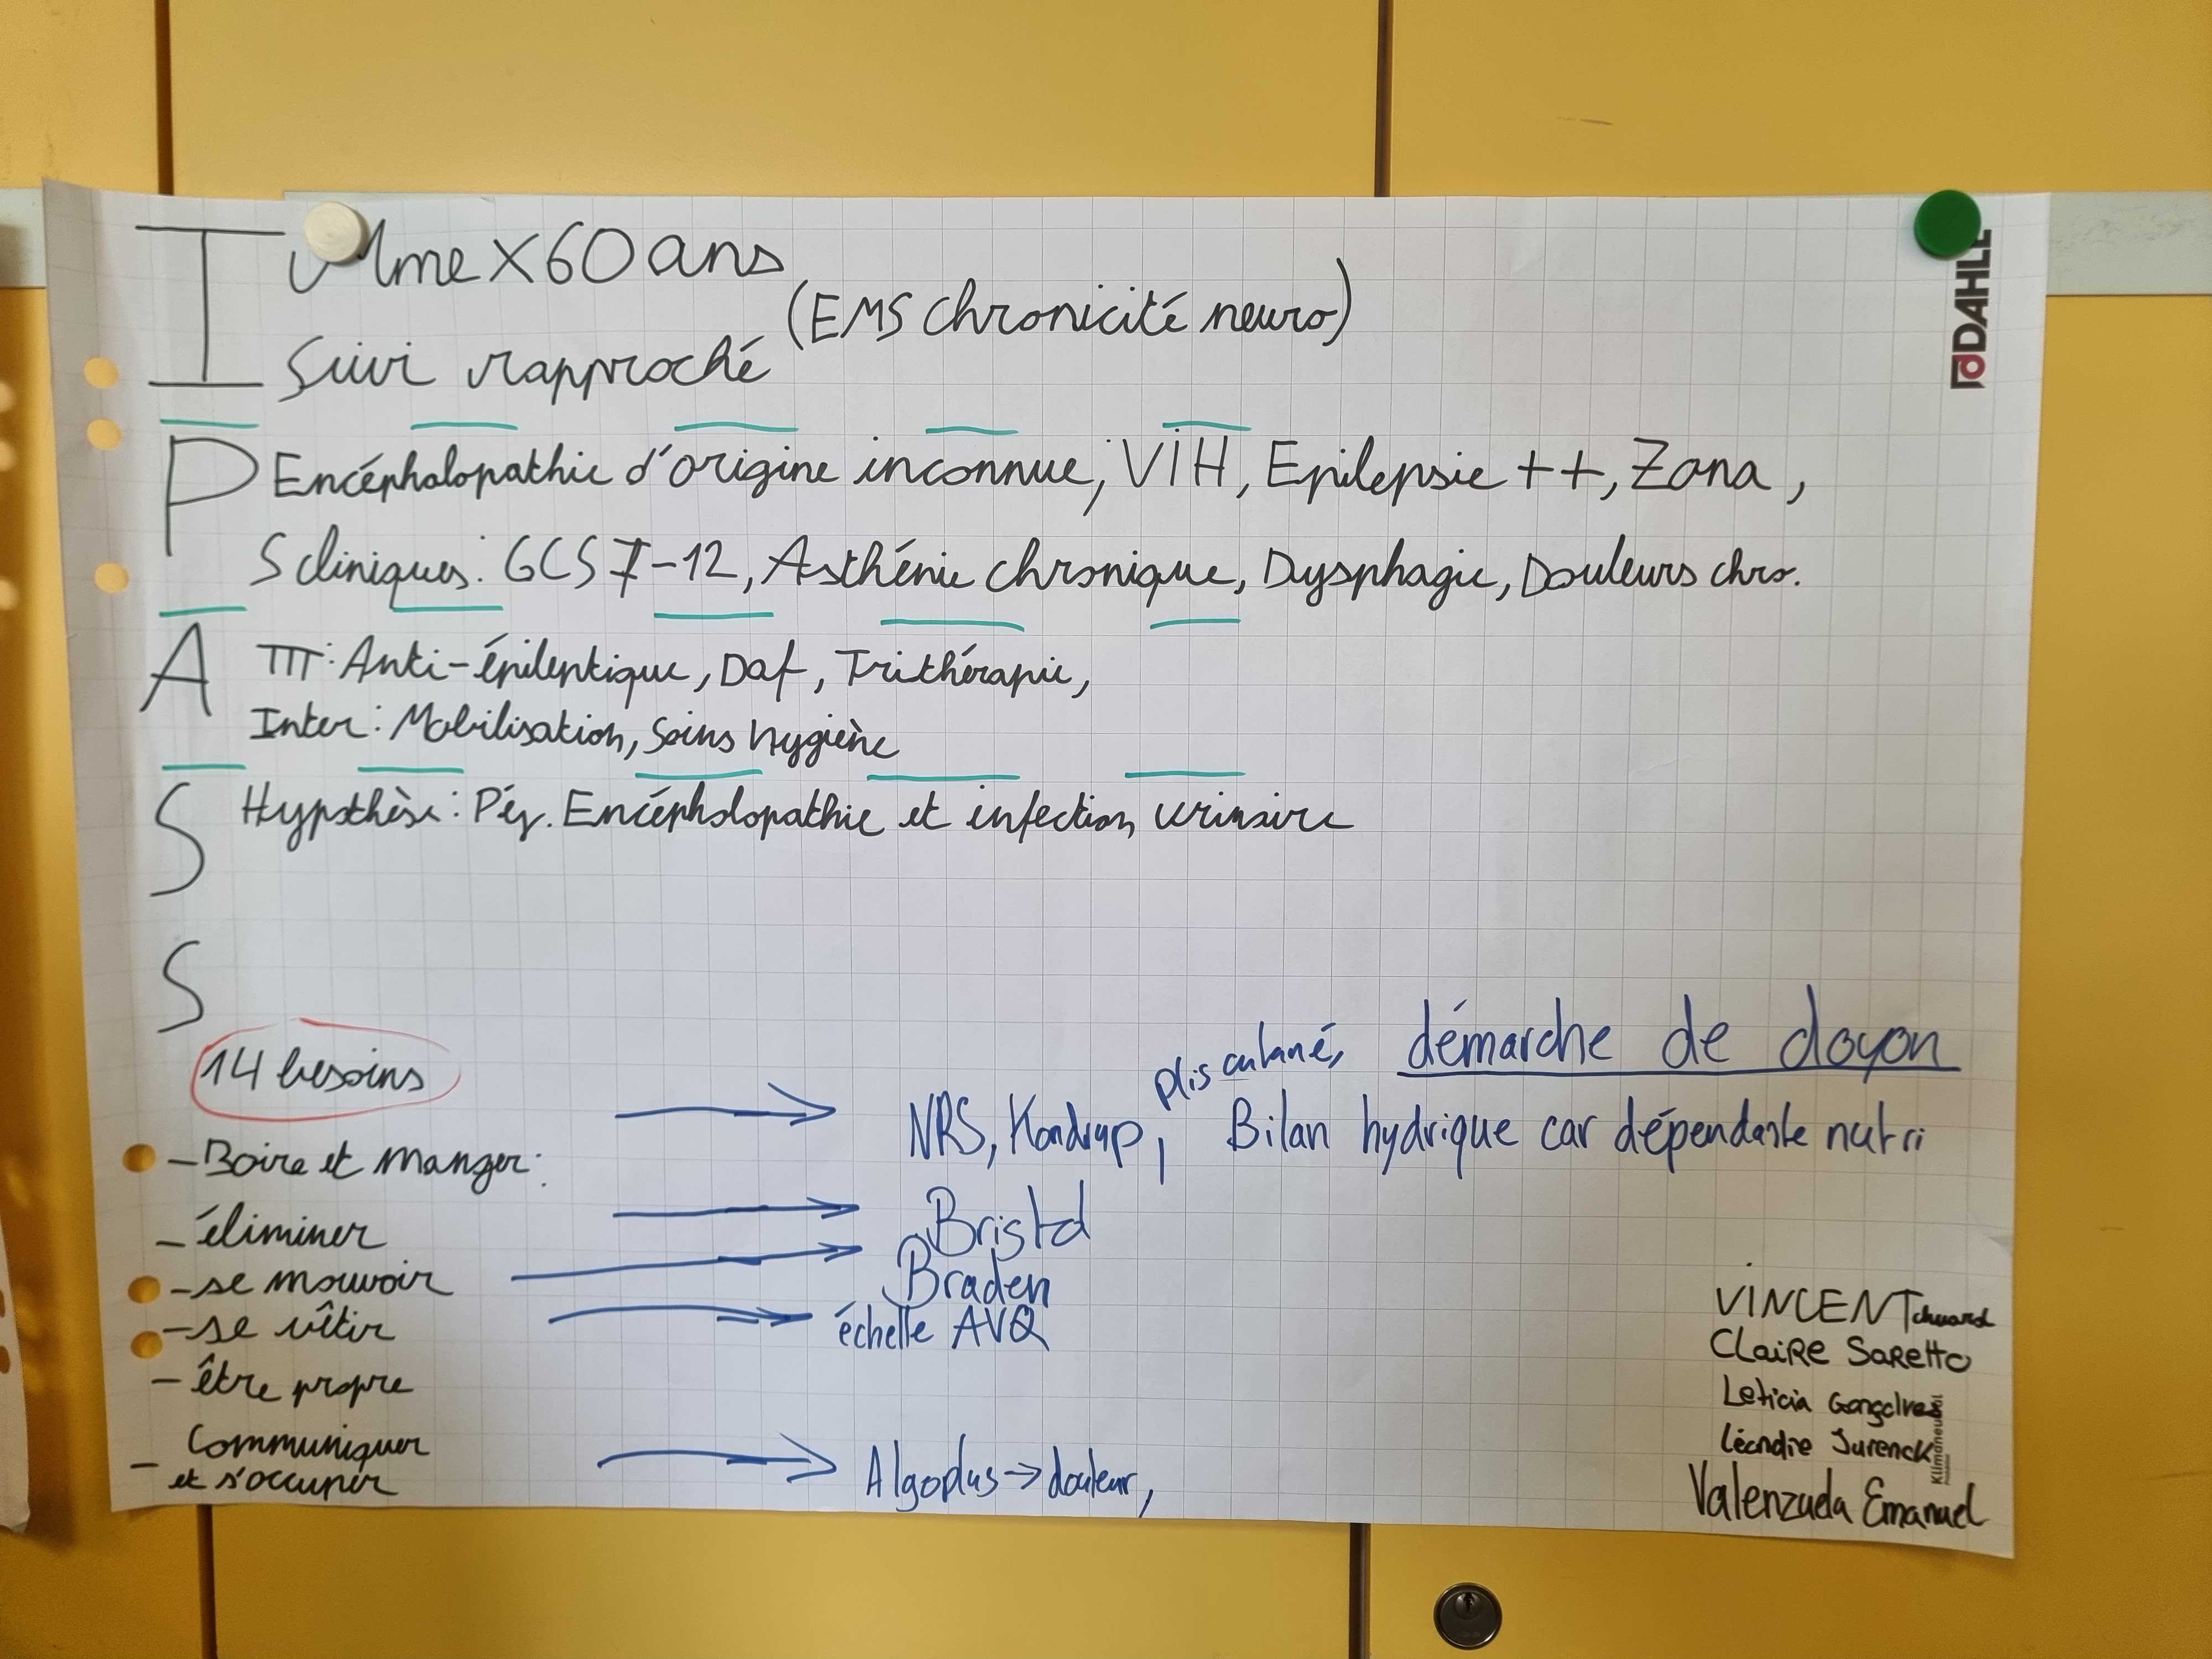 I Mme X 60 ans
(EMS chronicité neuro)
Suivi rapproché
P Encéphalopathie d'origine inconnue, VIH, Epilepsie ++, Zona,
S cliniques: GCS 7-12, Asthénie chronique, Dysphagie, Douleurs chro.
A TTT: Anti-épileptique, Daf, Trithérapie,
Inter: Mobilisation, Soins hygiène
S Hypothèse: Péj. Encéphalopathie et infection urinaire
S
démarche de doyon
14 besoins
plis cutané,
- Boire et manger: → NRS, Kondrup, Bilan hydrique car dépendante nutri
- éliminer → Bristol
- se mouvoir → Braden
- se vêtir → échelle AVQ
- être propre
- Communiquer
et s'occuper → Algoplus → douleur,
VINCENT
Claire Saretto
Leticia Gonçalves
Valenzuela Emanuel
DAHLE